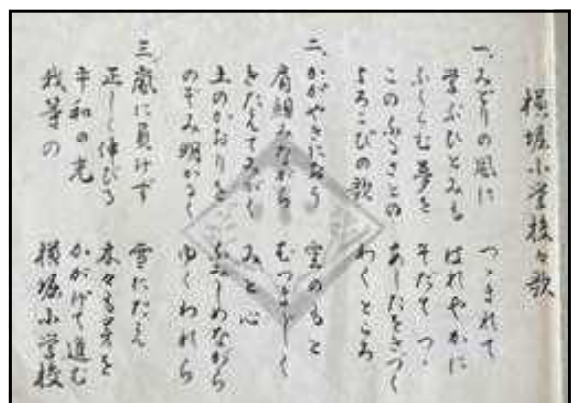 横堀小学校々歌
一、みどりの風に つゝまれて
学ぶひとみも はれやかに
ふくらむ夢を そだてつゝ
このふるさとの あしたをきづく
よろこびの歌 わくところ
二、かがやきにおう 空のもと
肩組みながら むつましく
きたえてみがく みと心
土のかおりを ふみしめながら
のぞみ明かるく ゆくわれら
三、嵐に負けず 雪にたえ
正しく伸びる 木々も芽を
平和の光 かがげて進む
我等の 横堀小学校